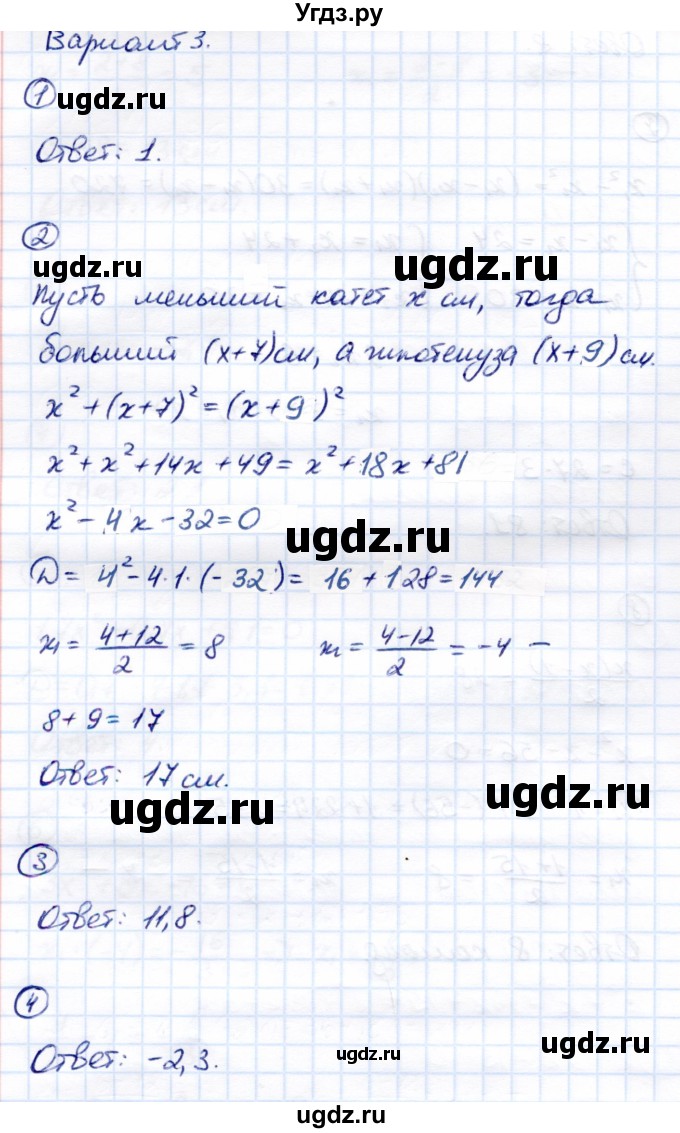 Угдз.ру
Вариант 3.
1 ugdz.ru
Ответ: 1.
2
ugdz.ru
Пусть меньший катет x см, тогда
больший (x+7)см, а гипотенуза (x+9)см.
x²+(x+7)²=(x+9)²
x²+x²+14x+49=x²+18x+81
x²-4x-32=0
ugdz.ru
D=4²-4·1·(-32)=16+128=144
x₁=(4+12)/2=8 x₂=(4-12)/2=-4 —
8+9=17
Ответ: 17 см.
ugdz.ru ugdz.ru
3
Ответ: 11,8.
ugdz.ru
4
ugdz.ru
Ответ: -2,3.
ugdz.ru
ugdz.ru